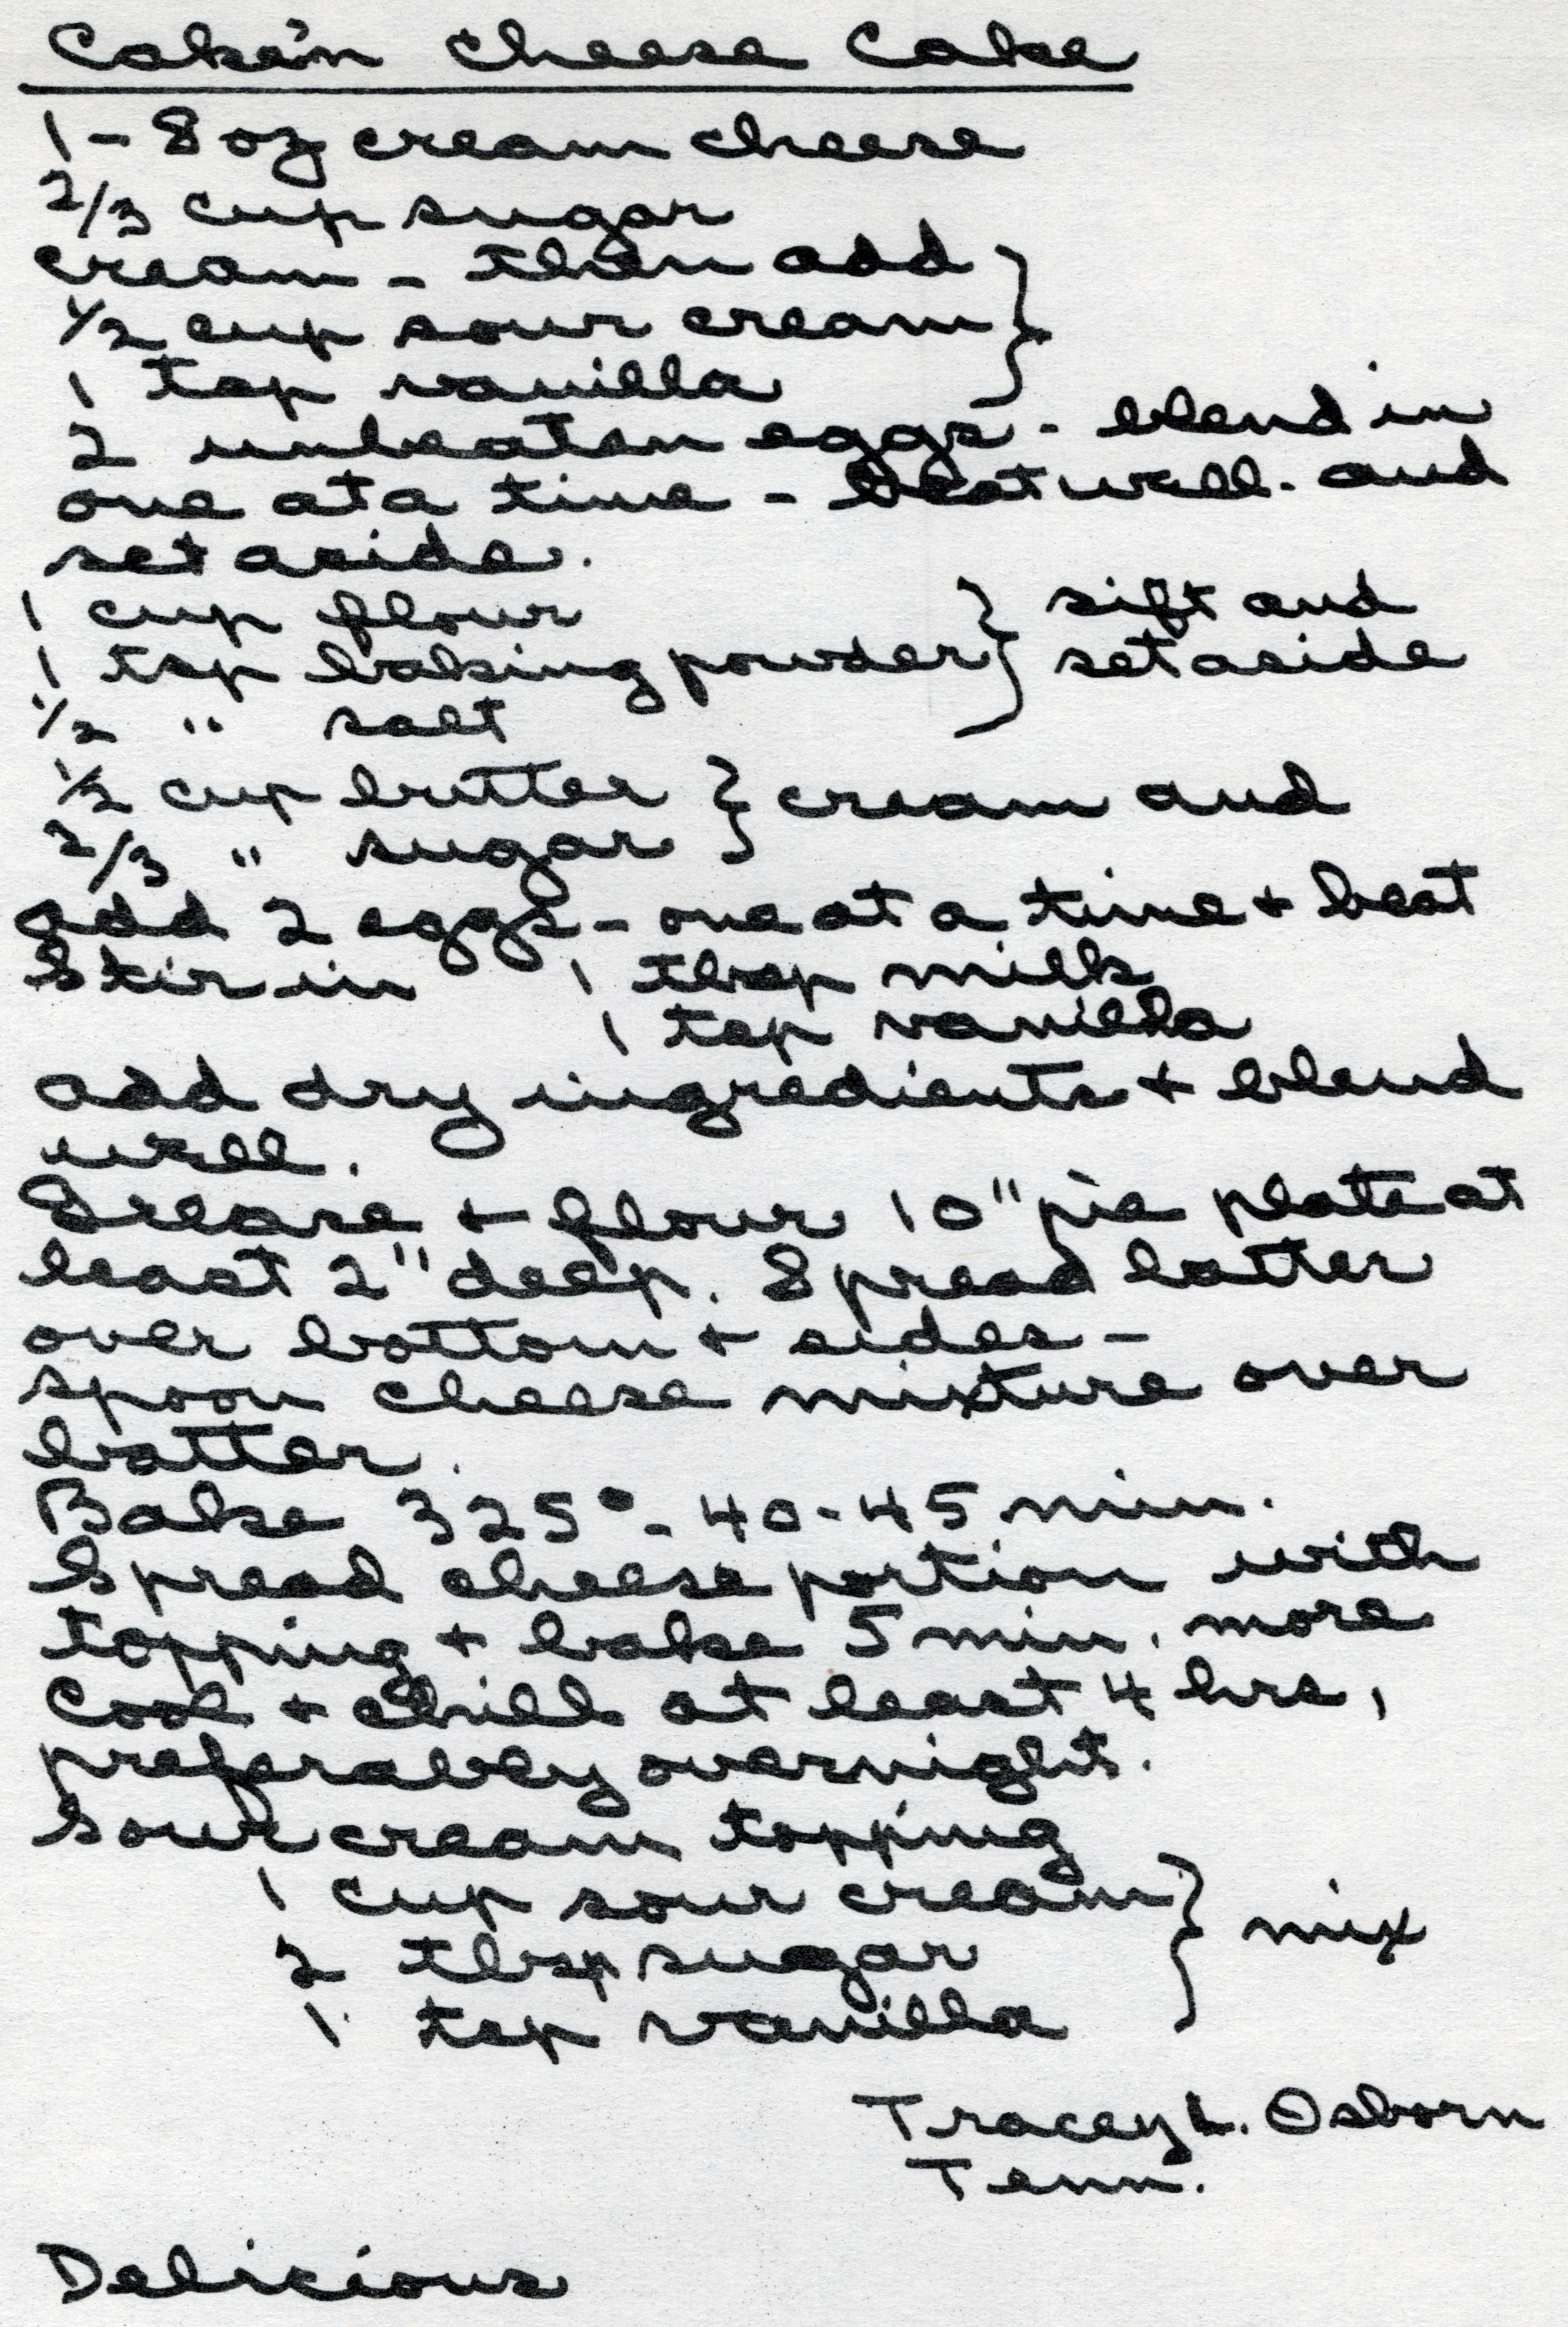 Cake'n Cheese Cake
1 - 8 oz cream cheese
2/3 cup sugar
cream - then add }
1/2 cup sour cream
1 tsp vanilla
2 unbeaten eggs - blend in
one at a time - beat well - and
set aside.
1 cup flour } sift and
1 tsp baking powder set aside
1/2 " salt
1/2 cup butter } cream and
2/3 " sugar
add 2 eggs - one at a time + beat
Stir in 1 tbsp milk
1 tsp vanilla
add dry ingredients + blend
well.
Grease + flour 10" pie plate at
least 2" deep. Spread batter
over bottom + sides -
spoon cheese mixture over
batter.
Bake 325° - 40-45 min.
Spread cheese portion with
topping + bake 5 min. more
Cool + chill at least 4 hrs,
preferably overnight.
Sour cream topping
1 cup sour cream } mix
2 tbsp sugar
1 tsp vanilla
Tracey L. Osborn
Tenn.
Delicious